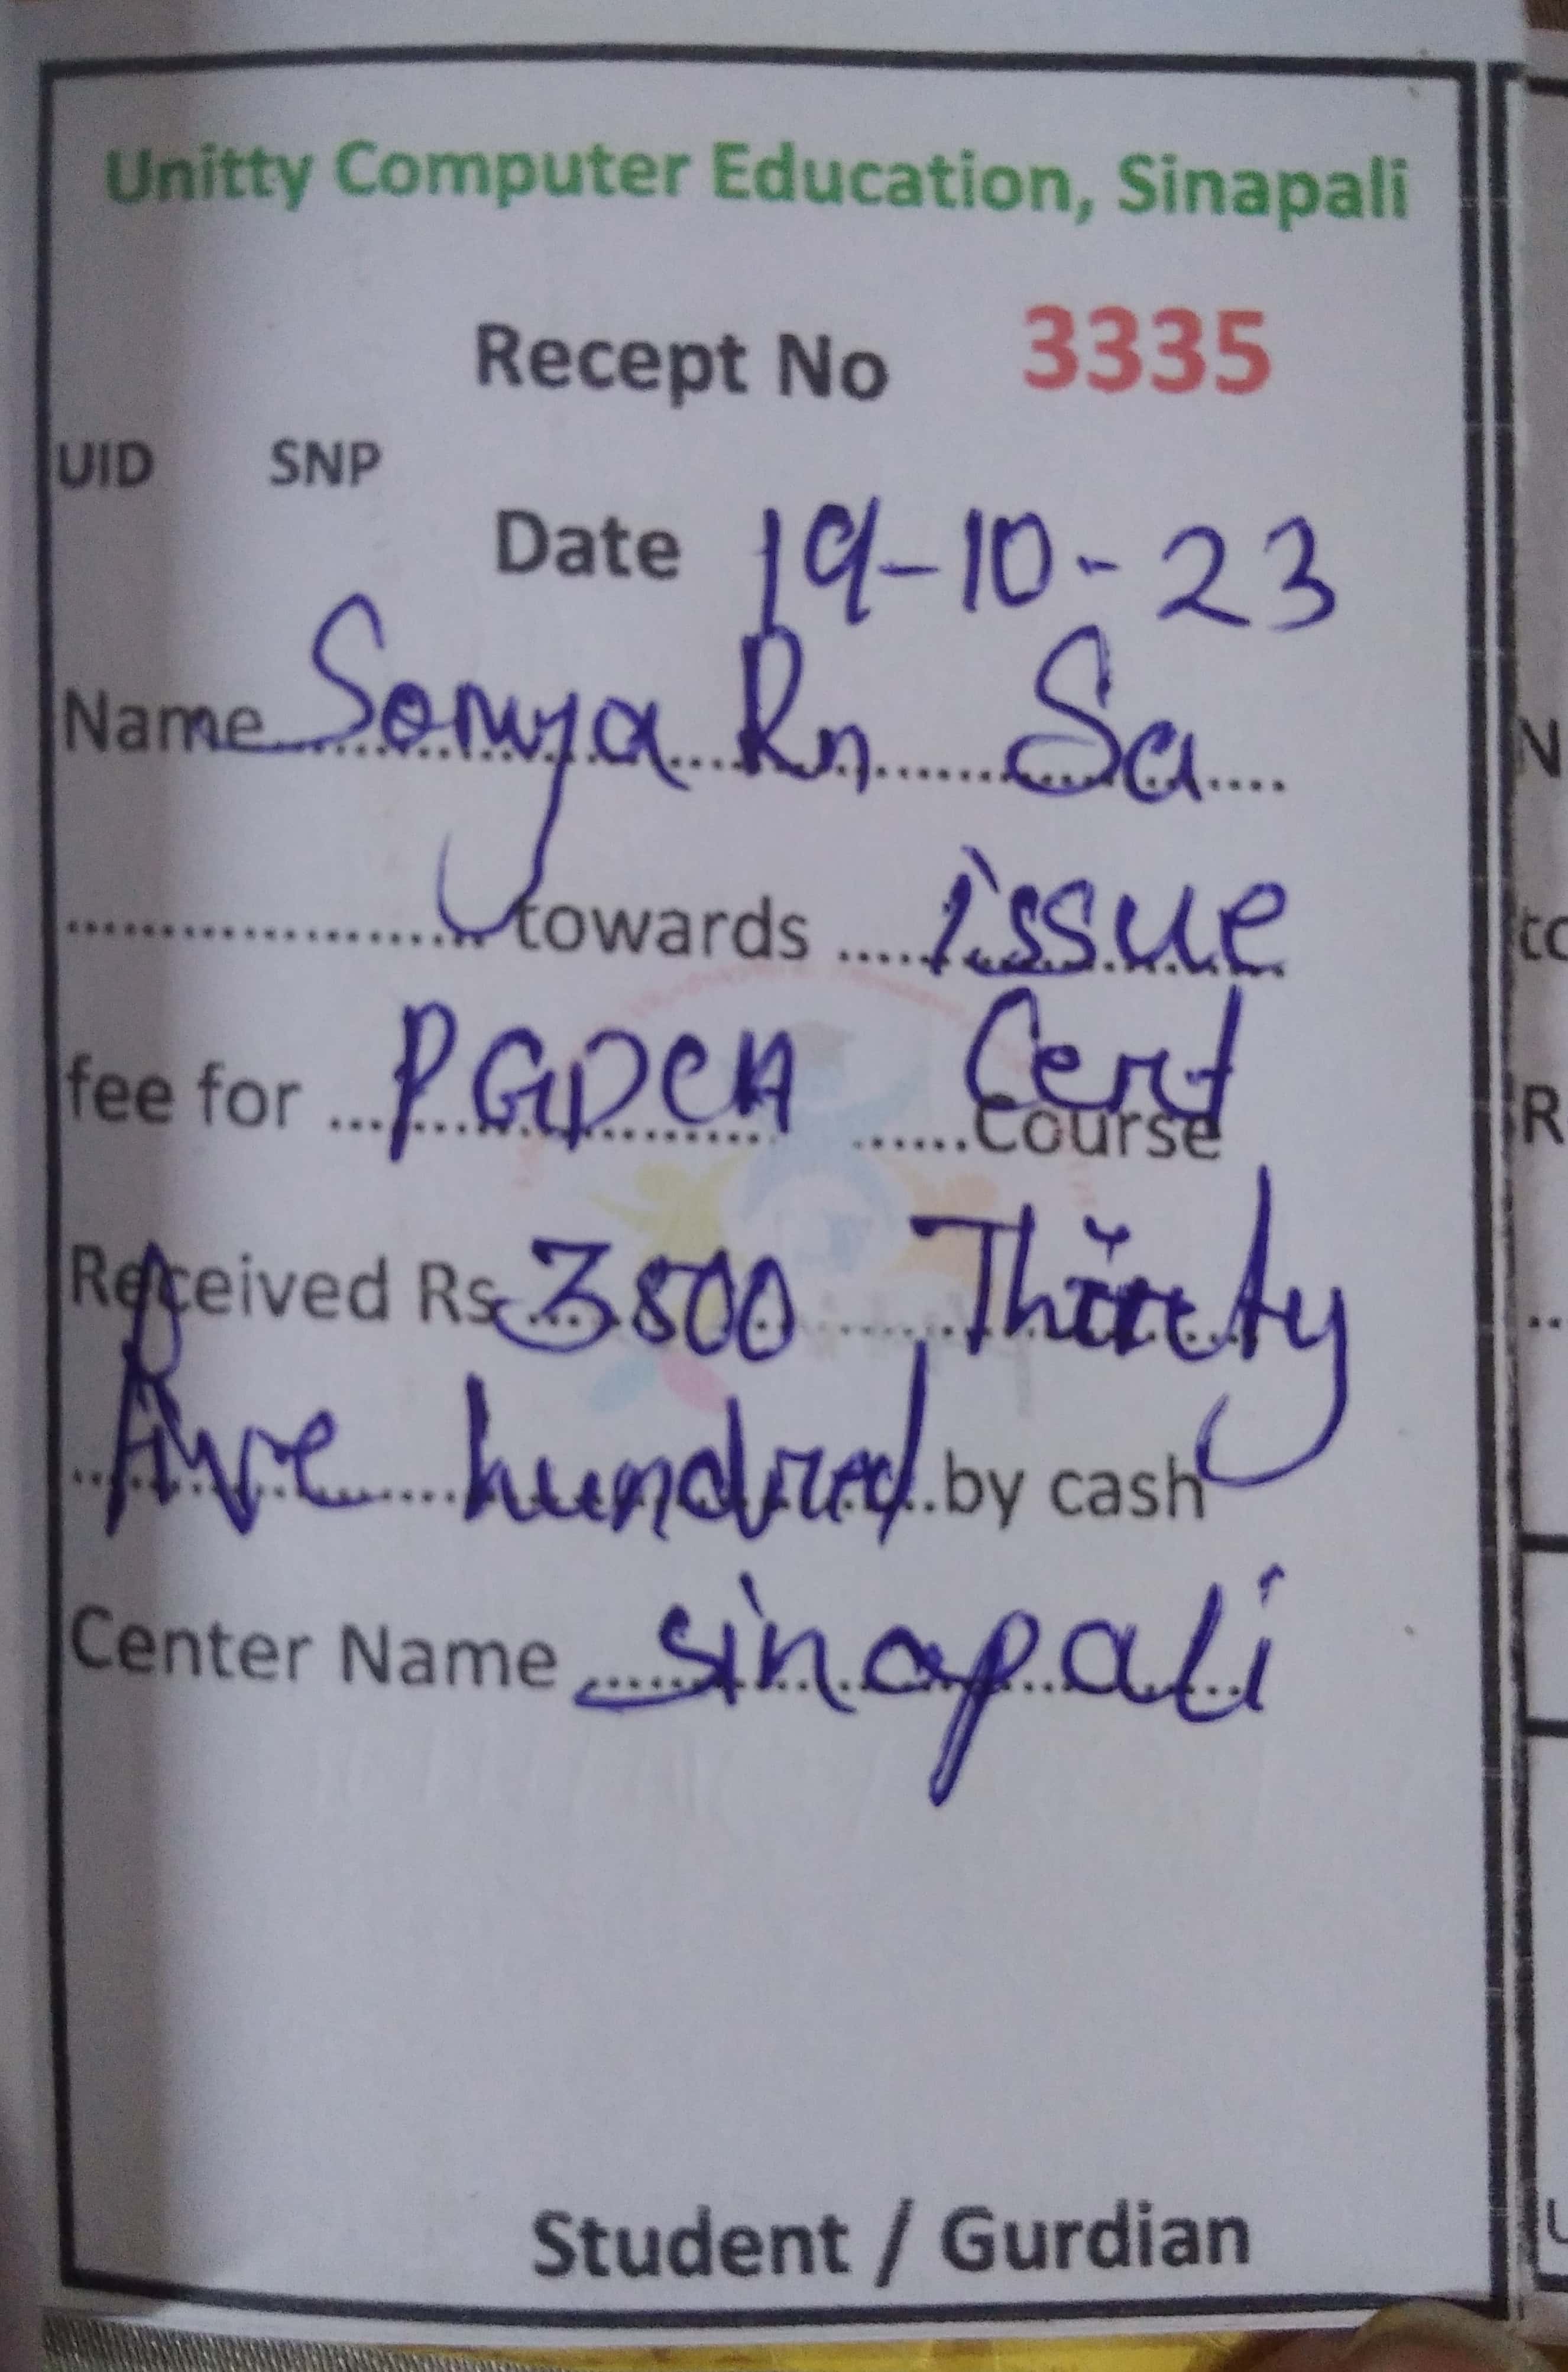 Unitty Computer Education, Sinapali
Recept No 3335
UID SNP
Date 19-10-23
Name Sonya Rn Sa
towards issue
fee for PGDCA Cert Course
Received Rs 3500 Thirty
five hundred by cash
Center Name sinapali
Student / Gurdian